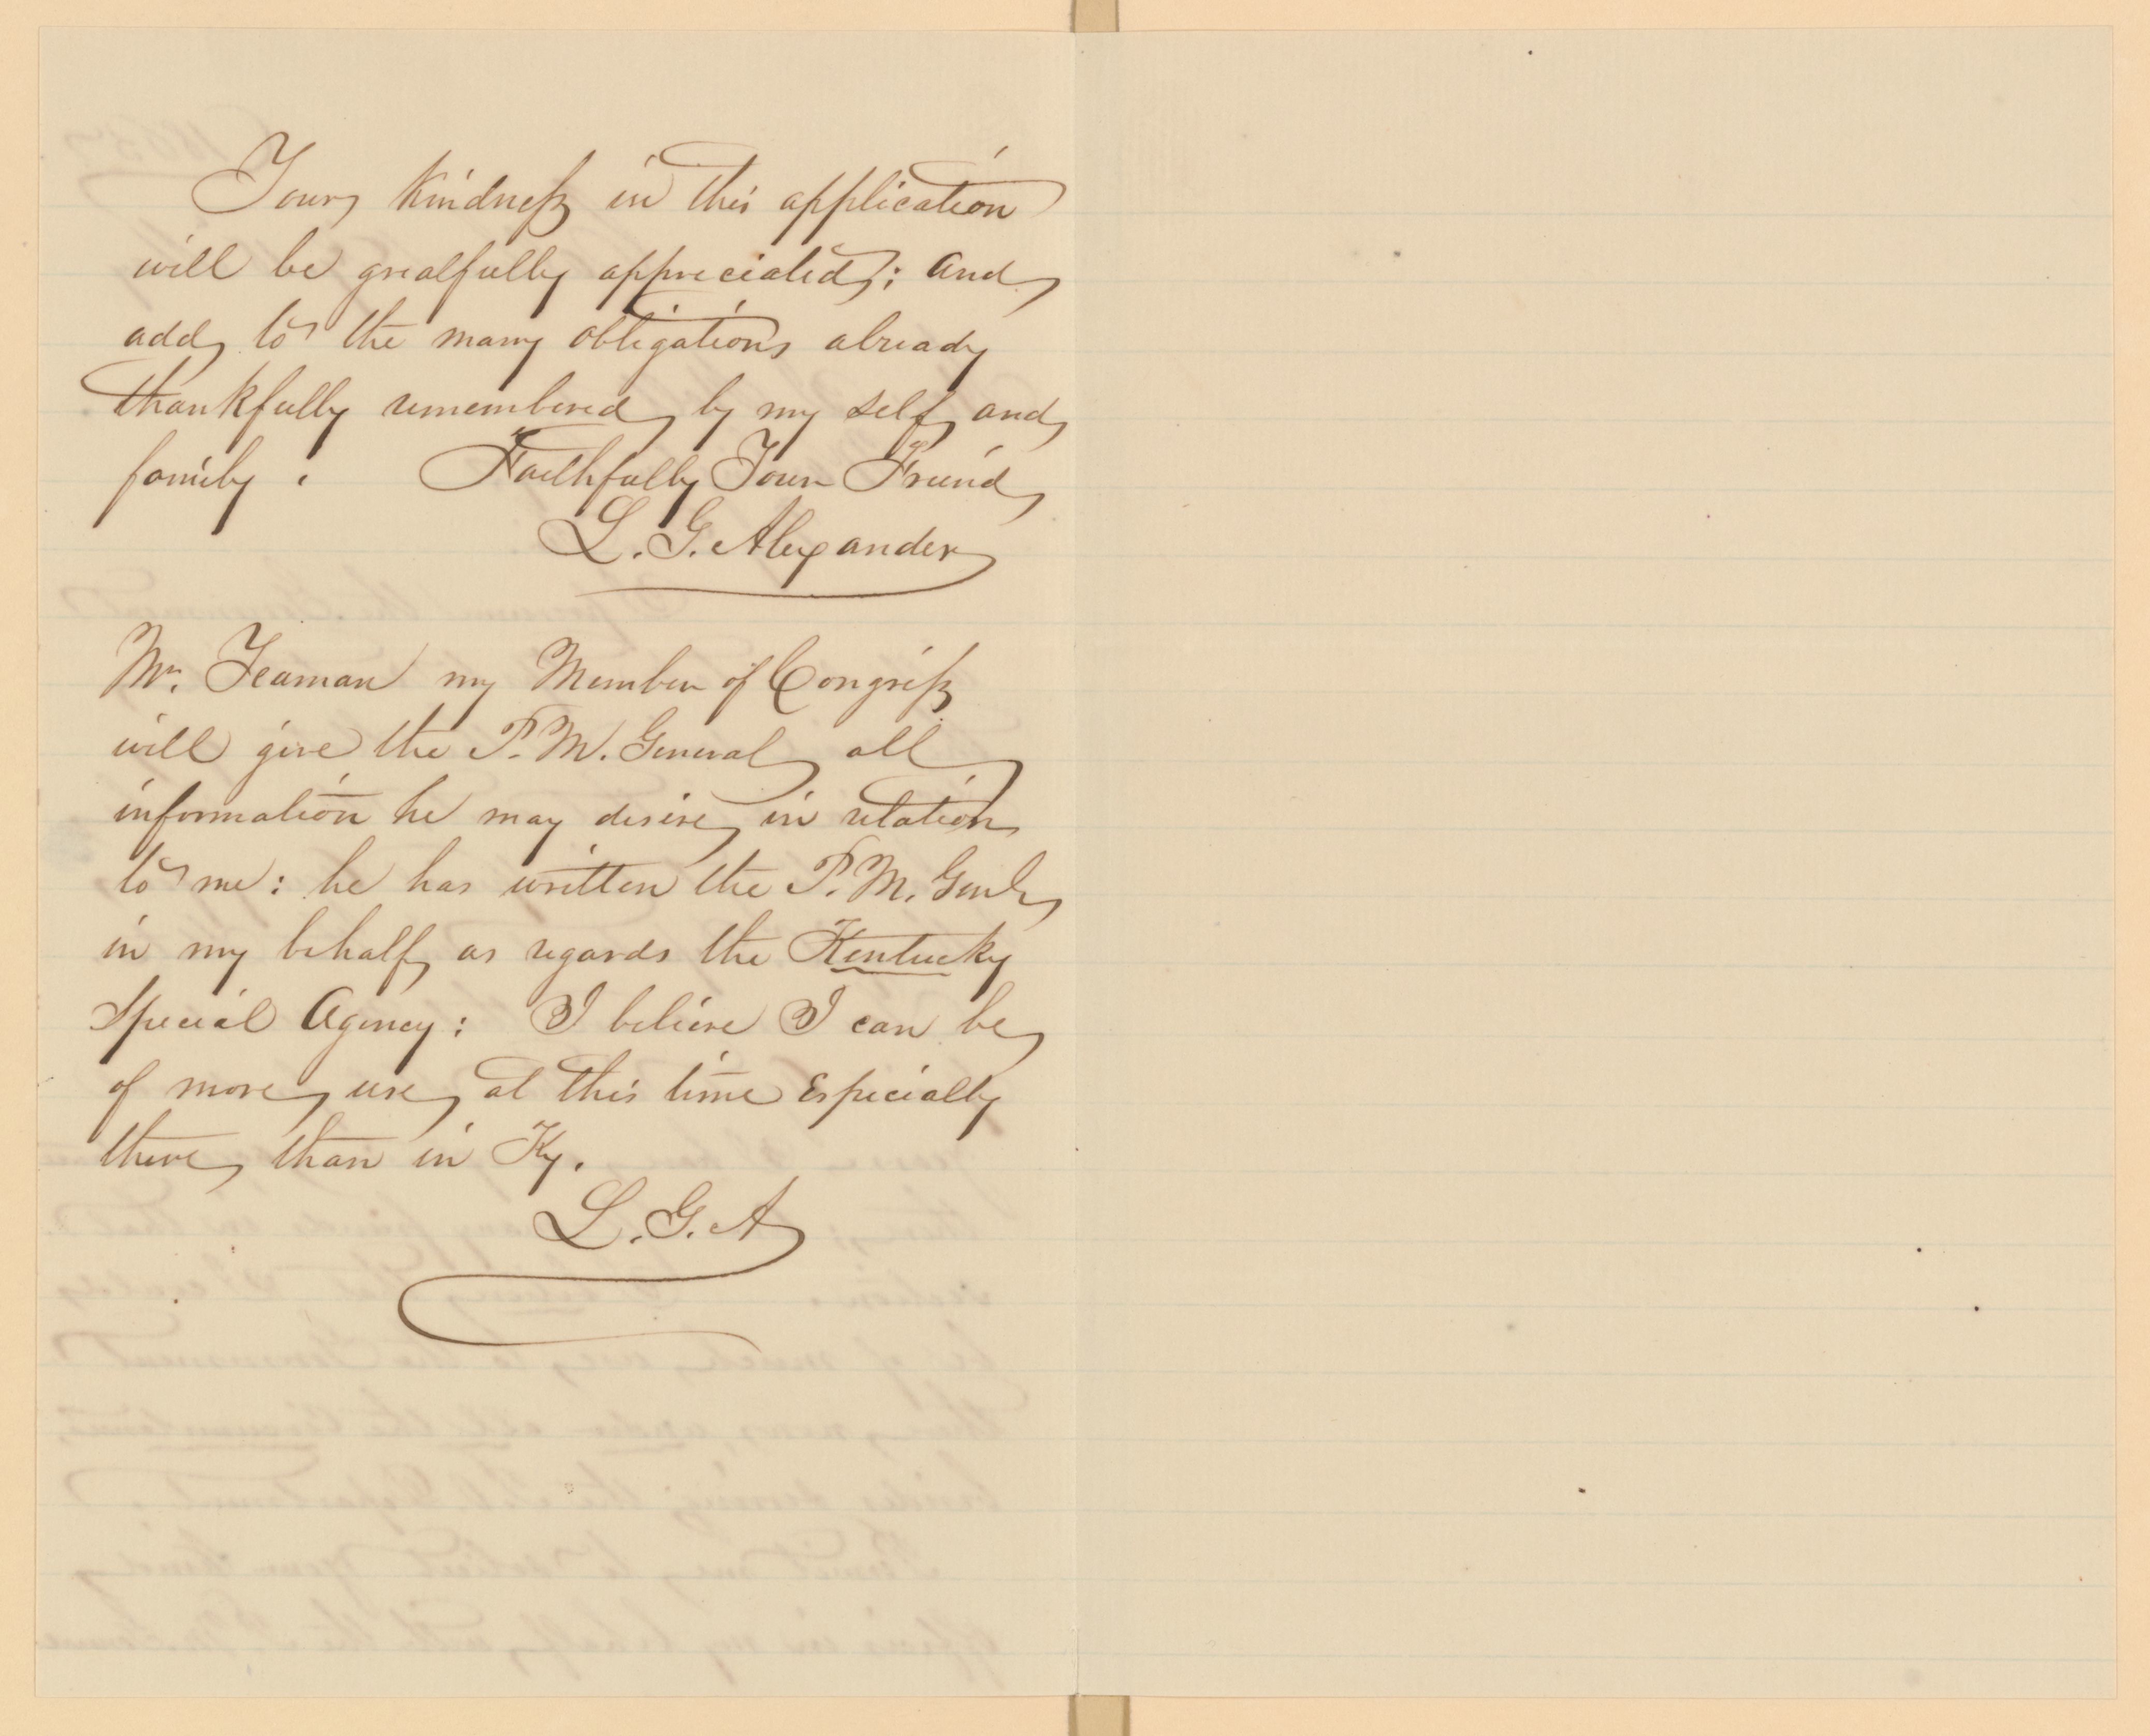 Your kindness in this application
will be greatfully appreciated; and
add to the many obligations already
thankfully remembered by my self and
family. Faithfully Your Friend
L. G. Alexander
Mr. Yeaman my Member of Congress
will give the P. M. General all
information he may desire in relation
to me: he has written the P. M. Genl
in my behalf as regards the Kentucky
Special Agency: I believe I can be
of more use at this time Especially
there than in Ky.
L. G. A